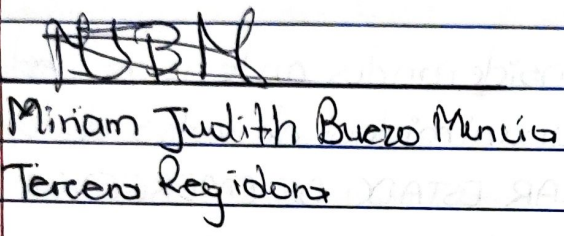 Miriam Judith Buezo Muncia
Tercera Regidora